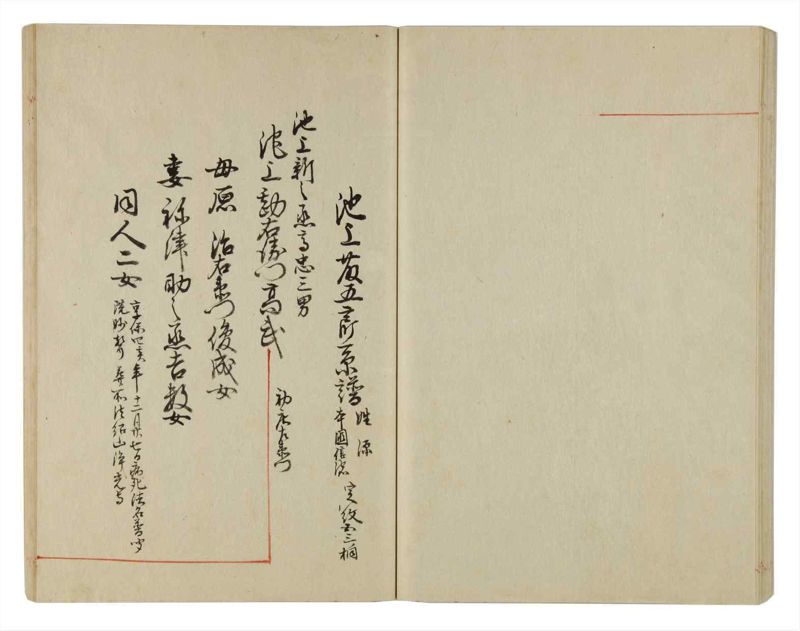 池上藤五郎系譜 姓 源 本國信濃 定紋五三桐
池上新之丞高忠三男
池上勘右衛門高武 初庄左衛門
母原 治右衛門俊成女
妻 祢津助之丞吉教女
同人二女 享保四亥年十二月廿七日病死法名